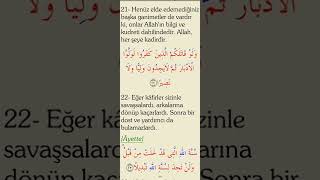 21- Henüz elde edemediğiniz
başka ganimetler de vardır
ki, onlar Allah'ın bilgi ve
kudreti dahilindedir. Allah,
her şeye kadirdir.
وَلَوْ قَاتَلَكُمُ الَّذِينَ كَفَرُوا لَوَلَّوُا
الْأَدْبَارَ ثُمَّ لَا يَجِدُونَ وَلِيًّا وَلَا
نَصِيرًا
22- Eğer kâfirler sizinle
savaşsalardı, arkalarına
dönüp kaçarlardı. Sonra bir
dost ve yardımcı da
bulamazlardı.
(Ayette)
سُنَّةَ اللَّهِ الَّتِي قَدْ خَلَتْ مِنْ قَبْلُ
وَلَنْ تَجِدَ لِسُنَّةِ اللَّهِ تَبْدِيلًا